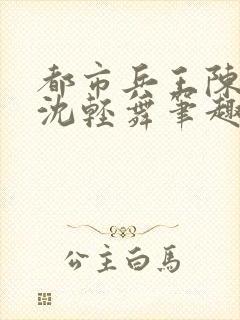 都市兵王陳
沈輕舞筆趣
公主白馬